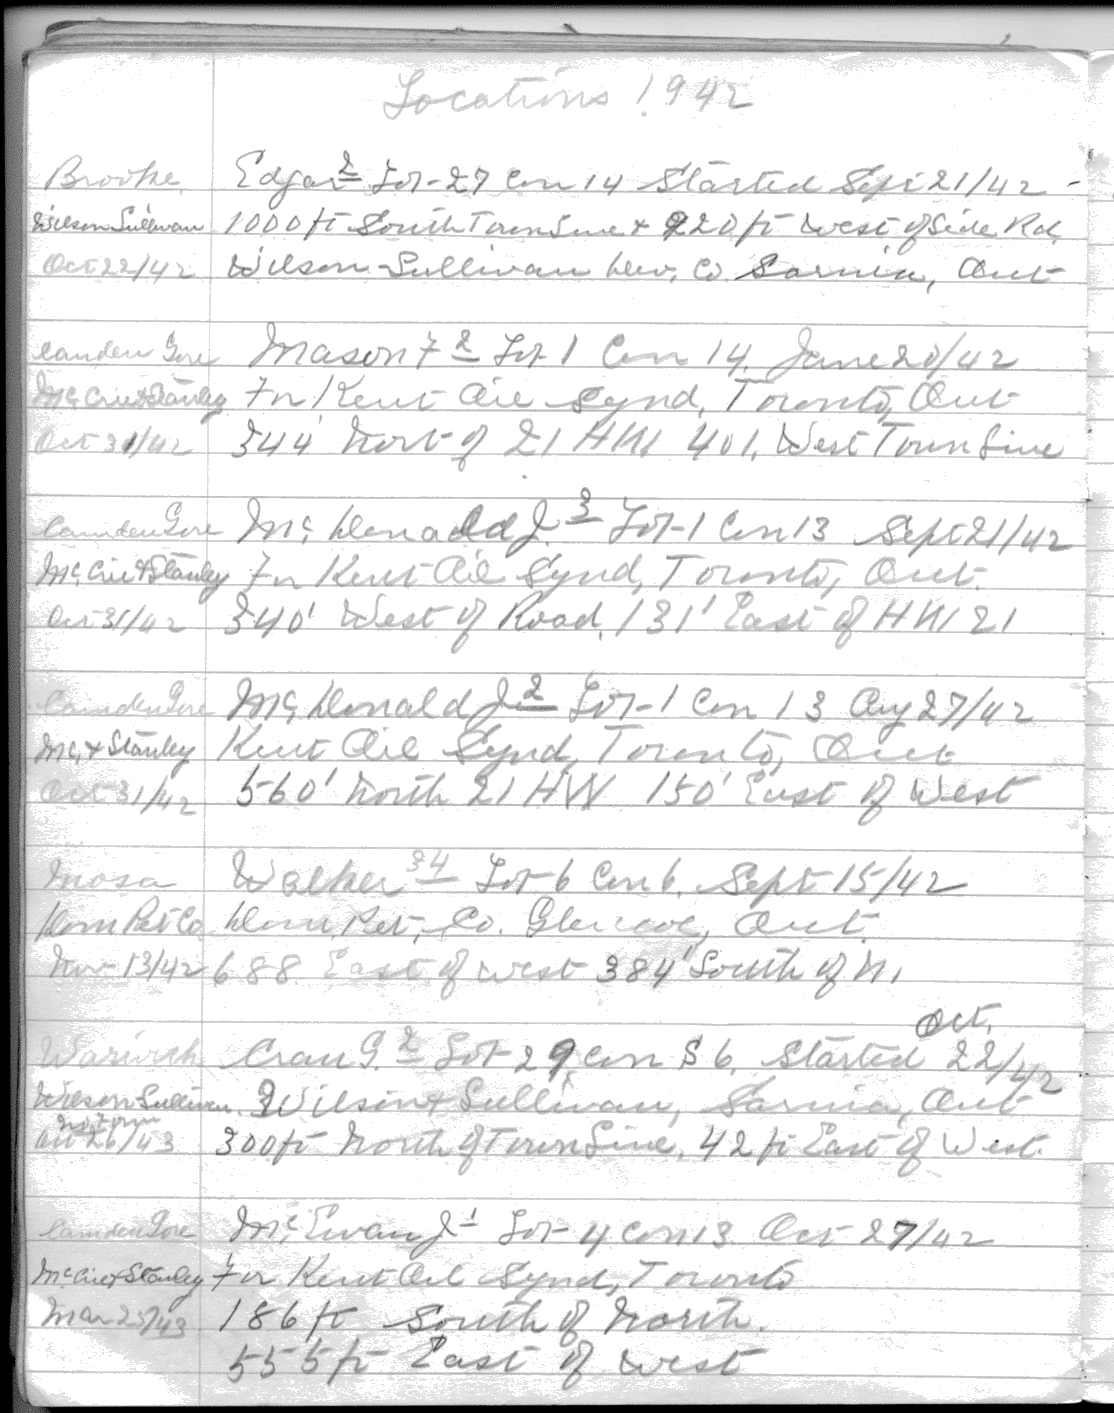 Locations 1942
Brooke. Edgar 2 Lot-27 Con 14 Started Sept 21/42 -
Wilson Sullivan 1000 ft South Town Line & 220 ft West of Side Rd.
Oct 22/42 Wilson-Sullivan Dev. Co. Sarnia, Ont
Camden Gore Mason F 2 Lot 1 Con 14. June 20/42
& Stanley For Kent Oil Synd, Toronto, Ont
Oct 31/42 344' Nort of 21 HW 401, West Town Line
Camden Gore Mc Donald J. 3 Lot-1 Con 13 Sept 21/42
& Stanley For Kent Oil Synd, Toronto, Ont.
Oct 31/42 340' West of Road, 131' East of HW 21
Camden Gore Mc Donald J 2 Lot-1 Con 13 Aug 27/42
Mc & Stanley Kent Oil Synd, Toronto, Ont
Oct 31/42 560' North 21 HW 150' East of West
Mosa Walker 34 Lot-6 Con 6. Sept 15/42
Dom Pet Co. Dom. Pet, Co. Glencoe, Ont.
Nov 13/42 688 East of West 384' South of N,
Oct.
Warwick Cran G. 2 Lot-29, Con S 6. Started 22/42
Wilson Sullivan. Wilson & Sullivan, Sarnia, Ont
26/43 300 ft North of Town Line, 42 ft East of West.
Camden Gore Mc Ewan J 1 Lot-4 Con 13 Oct 27/42
& Stanley For Kent Oil Synd, Toronto
Mar 25/43 186 ft South of North.
555 ft East of West